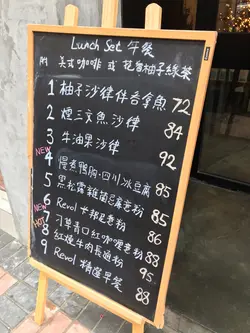 Lunch Set 午餐
附 美式咖啡 或 花香柚子綠茶
1 柚子沙律伴吞拿魚 72
2 煙三文魚沙律 84
3 牛油果沙律 92
NEW
4 慢煮鴨胸·四川冰豆腐 85
5 黑松露雜菌 85
NEW
6 Revol 86
HOT
7 青口紅咖喱 88
8 紅燒牛肉長通粉 95
9 Revol 精選早餐 88